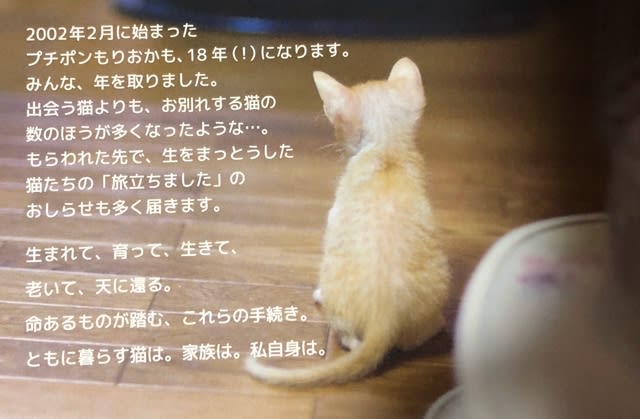 2002年2月に始まった
プチポンもりおかも、18年(!)になります。
みんな、年を取りました。
出会う猫よりも、お別れする猫の
数のほうが多くなったような…。
もらわれた先で、生をまっとうした
猫たちの「旅立ちました」の
おしらせも多く届きます。
生まれて、育って、生きて、
老いて、天に還る。
命あるものが踏む、これらの手続き。
ともに暮らす猫は。家族は。私自身は。